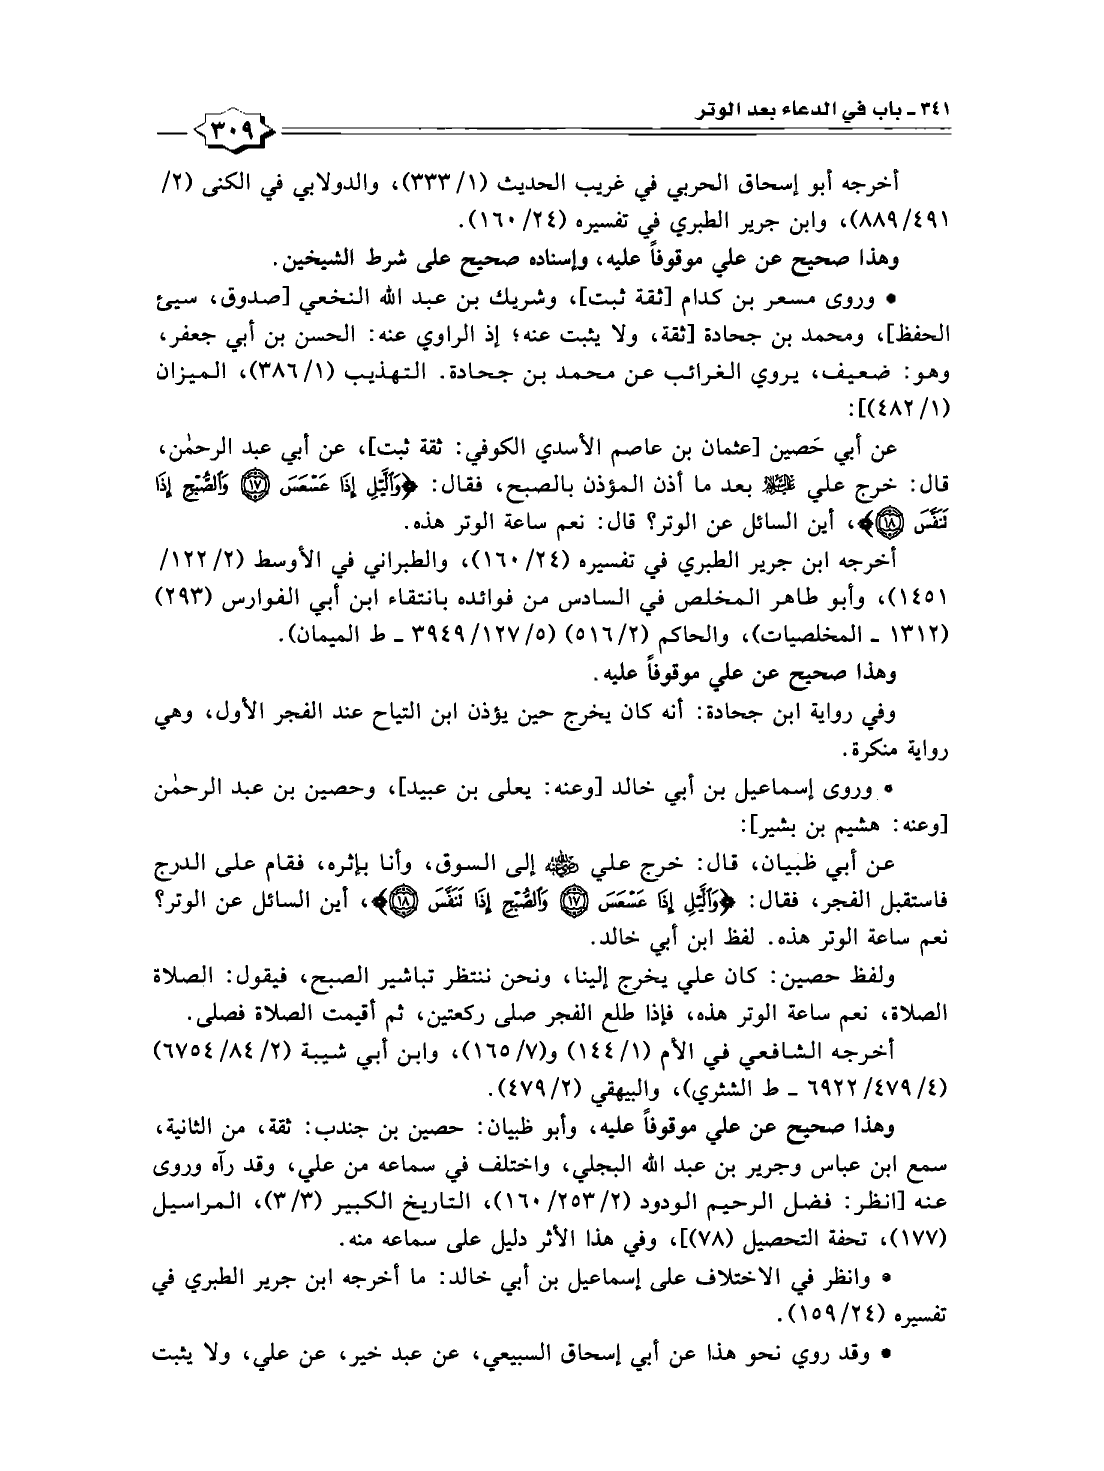 ٣٤١ ـ باب في الدعاء بعد الوتر
٣٠٩
أخرجه أبو إسحاق الحربي في غريب الحديث (١/ ٣٣٣)، والدولابي في الكنى (٢/
٨٨٩/٤٩١)، وابن جرير الطبري في تفسيره (٢٤/ ١٦٠).
وهذا صحيح عن علي موقوفاً عليه، وإسناده صحيح على شرط الشيخين.
• وروى مسعر بن كدام [ثقة ثبت]، وشريك بن عبد الله النخعي [صدوق، سيئ
الحفظ]، ومحمد بن جحادة [ثقة، ولا يثبت عنه؛ إذ الراوي عنه: الحسن بن أبي جعفر،
وهو: ضعيف، يروي الغرائب عن محمد بن جحادة. التهذيب (١/ ٣٨٦)، الميزان
(١/ ٤٨٢)]:
عن أبي حَصين [عثمان بن عاصم الأسدي الكوفي: ثقة ثبت]، عن أبي عبد الرحمٰن،
قال: خرج علي عليه السلام بعد ما أذن المؤذن بالصبح، فقال: ﴿وَٱلَّيْلِ إِذَا عَسْعَسَ ۝١٧ وَٱلصُّبْحِ إِذَا
تَنَفَّسَ ۝١٨﴾، أين السائل عن الوتر؟ قال: نعم ساعة الوتر هذه.
أخرجه ابن جرير الطبري في تفسيره (٢٤/ ١٦٠)، والطبراني في الأوسط (٢/ ١٢٢/
١٤٥١)، وأبو طاهر المخلص في السادس من فوائده بانتقاء ابن أبي الفوارس (٢٩٣)
(١٣١٢ ـ المخلصيات)، والحاكم (٢/ ٥١٦) (٥/ ١٢٧/ ٣٩٤٩ ـ ط الميمان).
وهذا صحيح عن علي موقوفاً عليه.
وفي رواية ابن جحادة: أنه كان يخرج حين يؤذن ابن التياح عند الفجر الأول، وهي
رواية منكرة.
• وروى إسماعيل بن أبي خالد [وعنه: يعلى بن عبيد]، وحصين بن عبد الرحمٰن
[وعنه: هشيم بن بشير]:
عن أبي ظبيان، قال: خرج علي رضي الله عنه إلى السوق، وأنا بإثره، فقام على الدرج
فاستقبل الفجر، فقال: ﴿وَٱلَّيْلِ إِذَا عَسْعَسَ ۝١٧ وَٱلصُّبْحِ إِذَا تَنَفَّسَ ۝١٨﴾، أين السائل عن الوتر؟
نعم ساعة الوتر هذه. لفظ ابن أبي خالد.
ولفظ حصين: كان علي يخرج إلينا، ونحن ننتظر تباشير الصبح، فيقول: الصلاة
الصلاة، نعم ساعة الوتر هذه، فإذا طلع الفجر صلى ركعتين، ثم أقيمت الصلاة فصلى.
أخرجه الشافعي في الأم (١/ ١٤٤) و(٧/ ١٦٥)، وابن أبي شيبة (٢/ ٨٤/ ٦٧٥٤)
(٤/ ٤٧٩/ ٦٩٢٢ ـ ط الشثري)، والبيهقي (٢/ ٤٧٩).
وهذا صحيح عن علي موقوفاً عليه، وأبو ظبيان: حصين بن جندب: ثقة، من الثانية،
سمع ابن عباس وجرير بن عبد الله البجلي، واختلف في سماعه من علي، وقد رآه وروى
عنه [انظر: فضل الرحيم الودود (٢/ ٢٥٣/ ١٦٠)، التاريخ الكبير (٣/ ٣)، المراسيل
(١٧٧)، تحفة التحصيل (٧٨)]، وفي هذا الأثر دليل على سماعه منه.
• وانظر في الاختلاف على إسماعيل بن أبي خالد: ما أخرجه ابن جرير الطبري في
تفسيره (٢٤/ ١٥٩).
• وقد روي نحو هذا عن أبي إسحاق السبيعي، عن عبد خير، عن علي، ولا يثبت